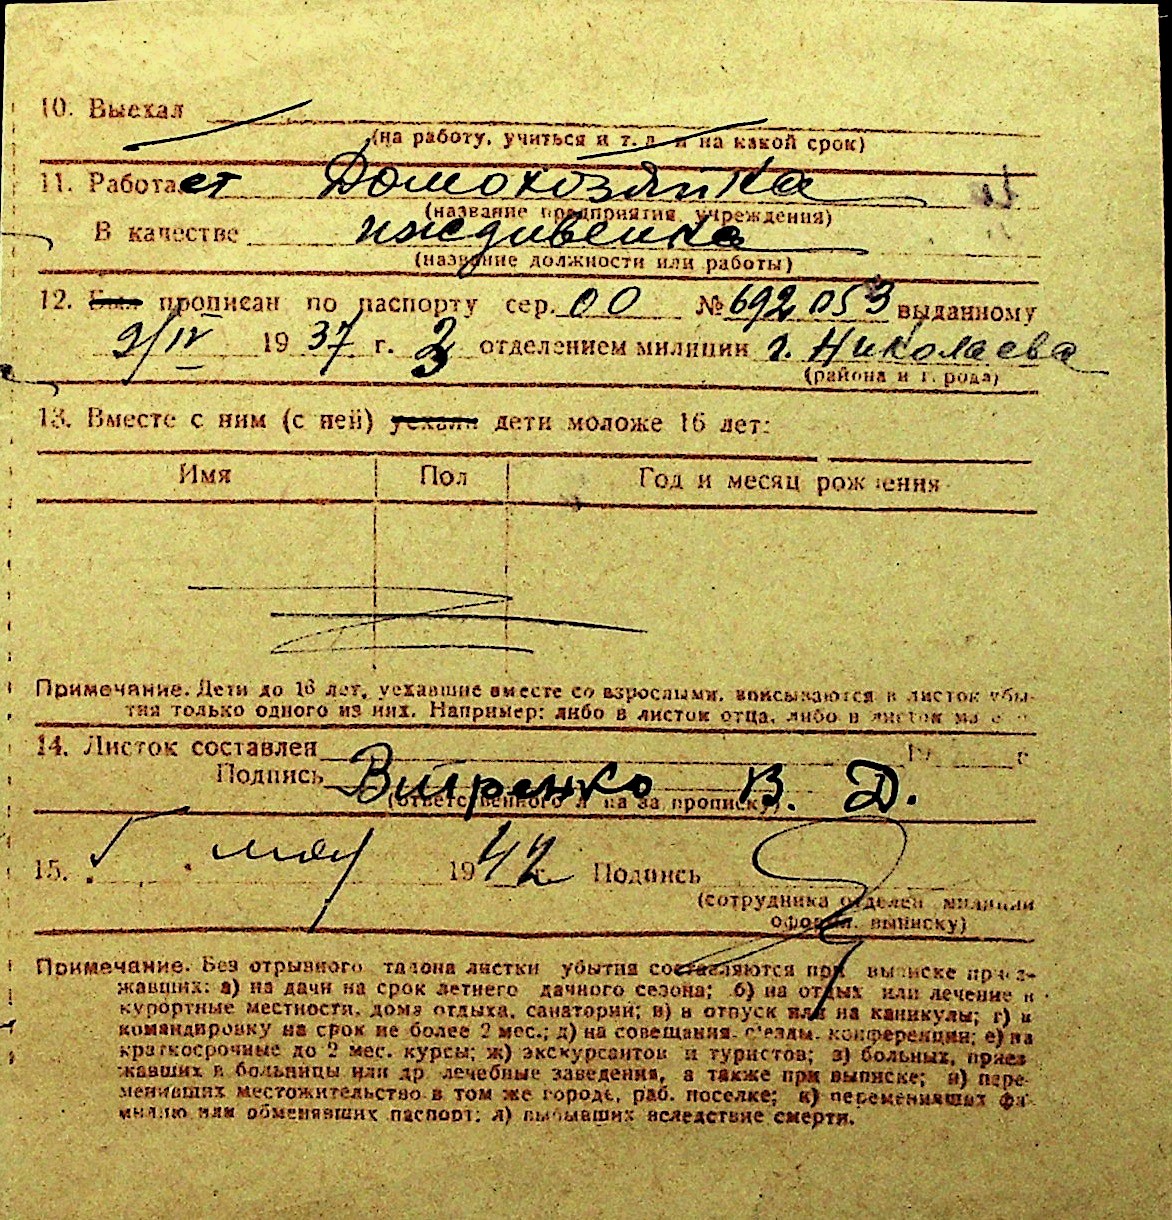 10. Выехал
(на работу, учиться и т. д. и на какой срок)
11. Работает Домохозяйка
(название предприятия, учреждения)
В качестве иждивенка
(название должности или работы)
12. Был прописан по паспорту сер. 00 № 692053 выданному
2/IV 1937 г. 3 отделением милиции г. Николаева
(района и города)
13. Вместе с ним (с ней) уехали дети моложе 16 лет:
Имя Пол Год и месяц рождения
Примечание. Дети до 16 лет, уехавшие вместе со взрослыми, вписываются в листок убы-
тия только одного из них. Например: либо в листок отца, либо в листок
14. Листок составлен 19 г
Подпись Витренко В. Д.
(ответственного за прописку)
15. мая 1942 г. Подпись
(сотрудника отделен. милиции
оформ. выписку)
Примечание. Без отрывного талона листки убытия составляются при выписке приез-
жавших: а) на дачи на срок летнего дачного сезона; б) на отдых или лечение в
курортные местности, дома отдыха, санатории; в) в отпуск или на каникулы; г) в
командировку на срок не более 2 мес.; д) на совещания, с'езды, конференции; е) на
краткосрочные до 2 мес. курсы; ж) экскурсантов и туристов; з) больных, приез
жавших в больницы или др лечебные заведения, а также при выписке; и) пере-
менивших местожительство в том же городе, раб. поселке; к) переменивших фа-
милию или обменявших паспорт; л) выбывших вследствие смерти.